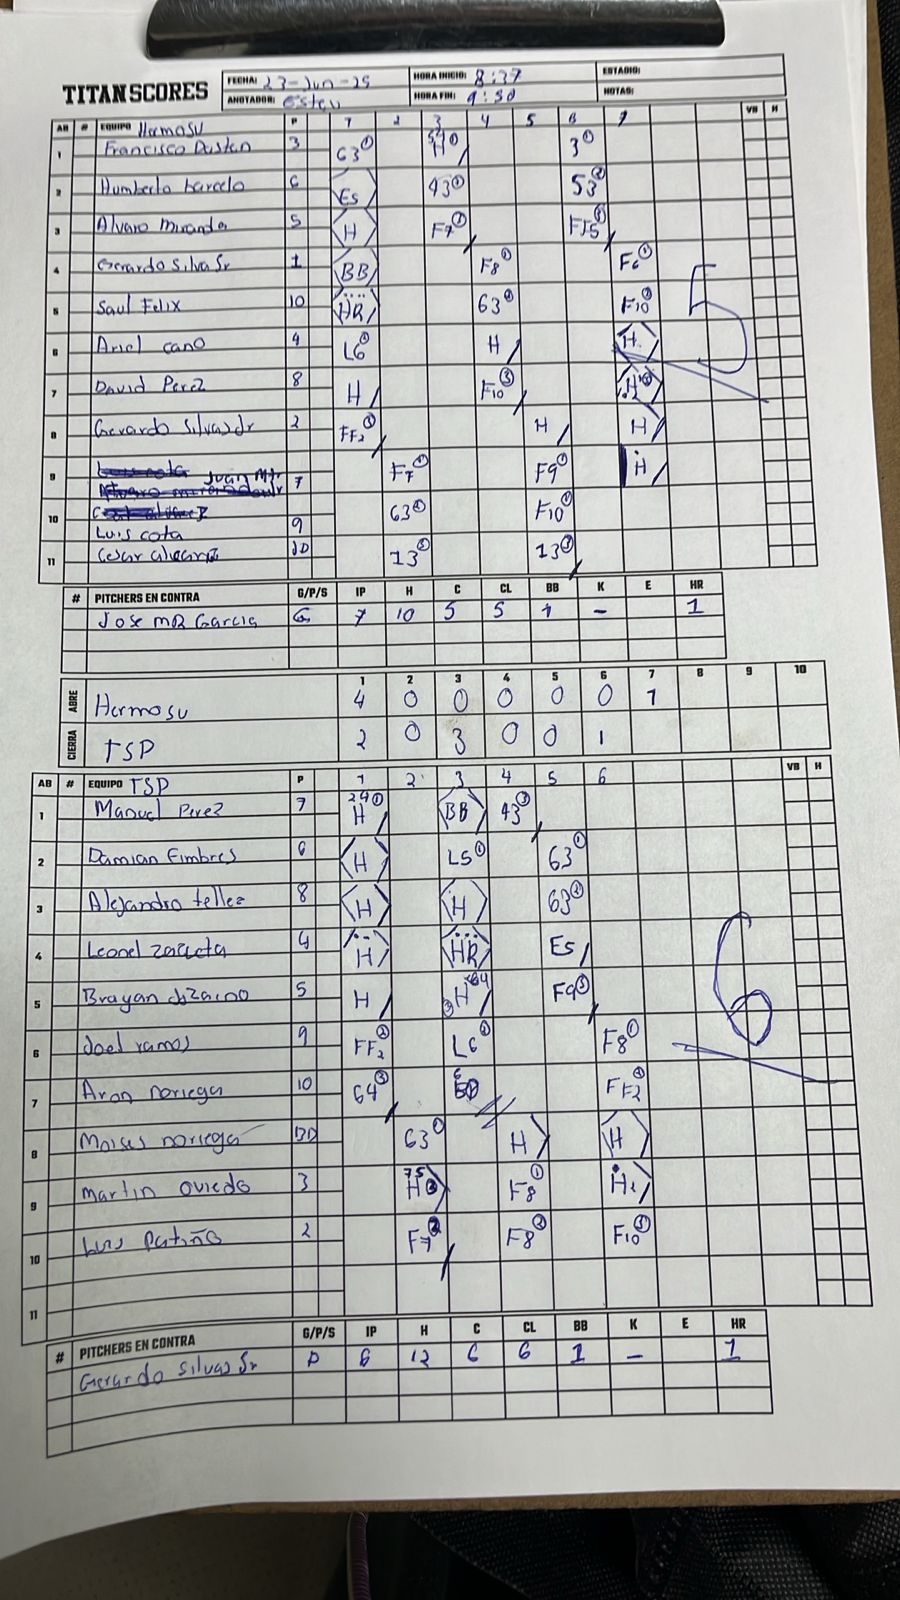 TITANSCORES
FECHA: 23-Jun-25 HORA INICIO: 8:37 ESTADIO:
ANOTADOR: Estev HORA FIN: 9:50 NOTAS:
AB # EQUIPO Hermosu P 1 2 3 4 5 6 7 VB H
1 Francisco 3 63① H① 3①
2 Humberto 6 E5 43② 53②
3 Alvaro Miranda 5 H F7③ FF5③
4 Gerardo Silva Sr 1 BB F8① F6①
5 Saul Felix 10 HR 63② F10②
6 Ariel cano 4 L6① H H
7 David Perez 8 H F10③ H
8 Gerardo Silvas Jr 2 FF2 H H
9 Juan 7 F7① F9① H
10 Luis cota 9 63② F10
11 Cesar alvarez BD 13③ 13③
5
# PITCHERS EN CONTRA G/P/S IP H C CL BB K E HR
Jose Ma Garcia G 7 10 5 5 1 - 1
1 2 3 4 5 6 7 8 9 10
ABRE Hermosu 4 0 0 0 0 0 1
CIERRA TSP 2 0 3 0 0 1
AB # EQUIPO TSP P 1 2 3 4 5 6 VB H
1 Manuel Perez 7 24① H BB 43③
2 Damian Fimbres 6 H L5① 63①
3 Alejandro tellez 8 H H 63②
4 Leonel 4 H HR E5
5 Brayan 5 H H 64 F9③
6 Joel ramos 9 FF2② L6② F8①
7 Aron noriega 10 64③ FF2②
8 Moises noriega BD 63① H H
9 Martin oviedo 3 75 H② F8① H
10 Luis Patiño 2 F7 F8② F10③
11
6
# PITCHERS EN CONTRA G/P/S IP H C CL BB K E HR
Gerardo Silvas Sr P 6 12 6 6 1 - 1